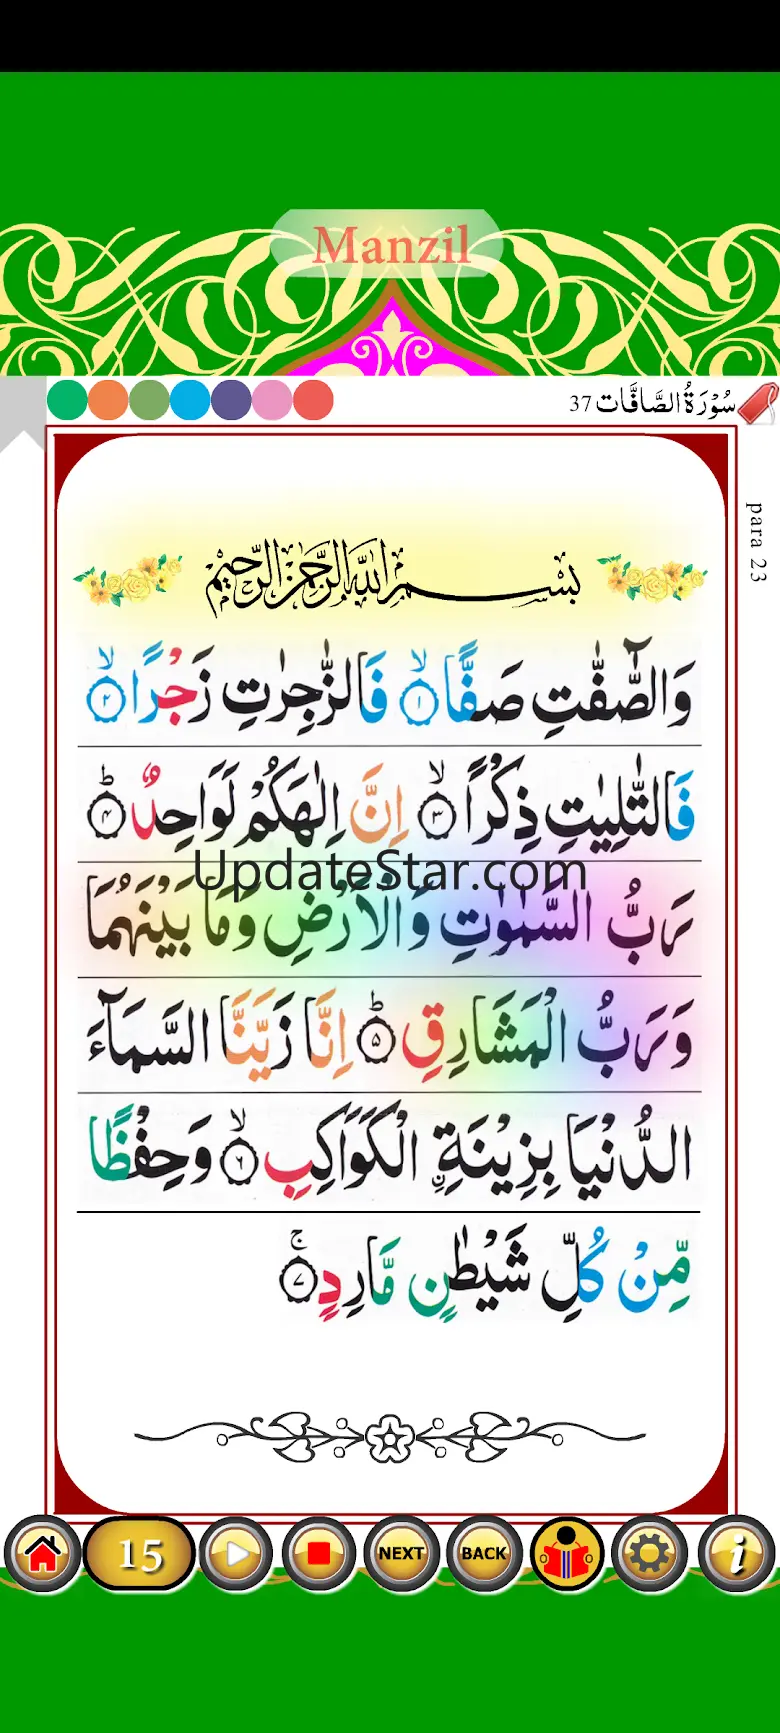 Manzil
سُوْرَةُ الصَّافَّات 37
para 23
بِسْمِ اللهِ الرَّحْمٰنِ الرَّحِيْمِ
وَالصّٰٓفّٰتِ صَفًّا ۙ‏﴿۱﴾ فَالزّٰجِرٰتِ زَجْرًا ۙ‏﴿۲﴾
فَالتّٰلِيٰتِ ذِكْرًا ۙ‏﴿۳﴾ اِنَّ اِلٰهَكُمْ لَوَاحِدٌ ؕ‏﴿۴﴾
UpdateStar.com
رَبُّ السَّمٰوٰتِ وَالْاَرْضِ وَمَا بَيْنَهُمَا
وَرَبُّ الْمَشَارِقِ ؕ‏﴿۵﴾ اِنَّا زَيَّنَّا السَّمَآءَ
الدُّنْيَا بِزِيْنَةِ ۨ الْكَوَاكِبِ ۙ‏﴿۶﴾ وَحِفْظًا
مِّنْ كُلِّ شَيْطٰنٍ مَّارِدٍ ۚ‏﴿۷﴾
15
NEXT
BACK
i